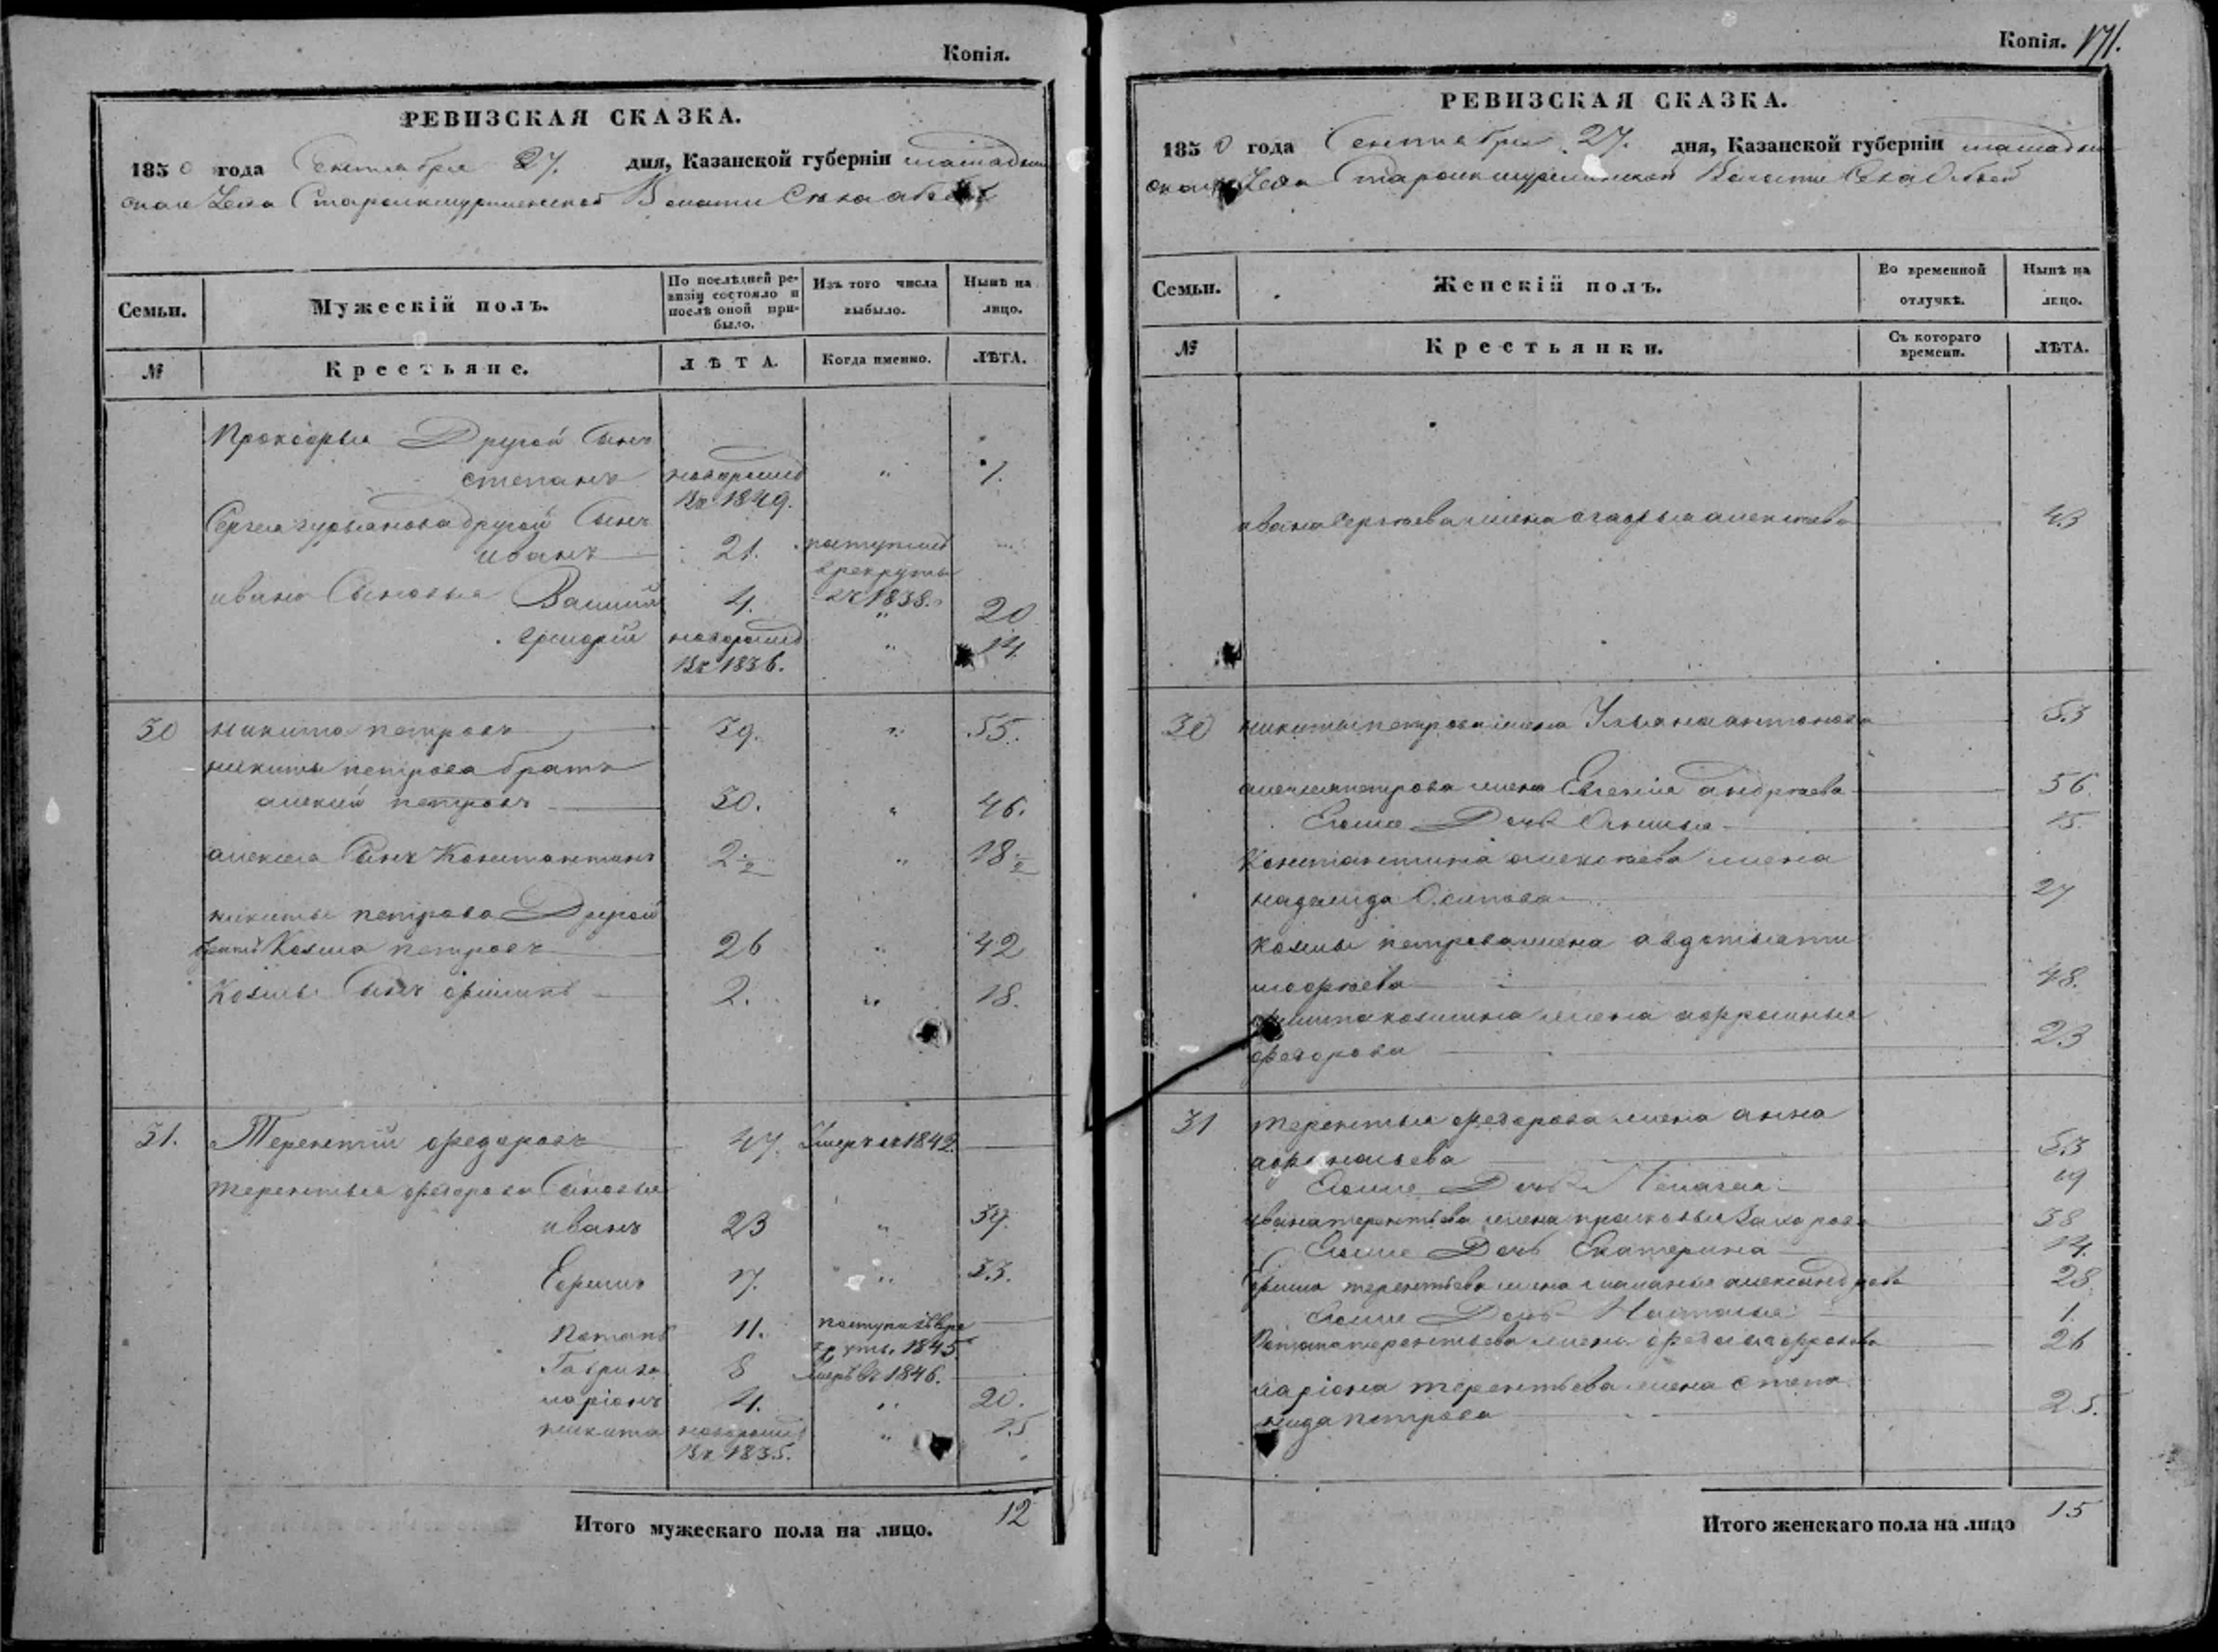 Копія.
РЕВИЗСКАЯ СКАЗКА.
1850 года Сентября 27. дня, Казанской губерніи мамадыш
скаго Уезда Староикшурминской Волости Села
Семьи.
Мужескій полъ.
По послѣдней ре-
визіи состояло и
послѣ оной при-
было.
Изъ того числа
выбыло.
Нынѣ на
лицо.
№
Крестьяне.
ЛѢТА.
Когда именно.
ЛѢТА.
Прокофья Другой Сынъ
степанъ новорожд " 1.
въ 1849.
Сергея гурьянова другой Сынъ
иванъ 21. поступилъ
в рекруты
въ 1838.
ивана Сыновья Василий 4. " 20
григорій новорожд " 14
въ 1836.
30 никита петровъ 39. " 55.
никиты петрова братъ
алексей петровъ 30. " 46.
алексея Сынъ Константинъ 2 1/2 " 18 1/2
никиты петрова Другой
братъ Козма петровъ 26 " 42
Козмы Сынъ филипъ 2. " 18.
31. Терентий федоровъ 47. Умеръ въ 1842.
терентья федорова Сыновья
иванъ 23 " 39.
Ефимъ 17. " 33.
потапъ 11. поступилъ в ре
круты. 1845.
Гаврила 8 умеръ въ 1846.
ларіонъ 4. " 20.
никита новорожд " 15
въ 1835.
Итого мужескаго пола на лицо. 12
Копія. 171.
РЕВИЗСКАЯ СКАЗКА.
1850 года Сентября 27. дня, Казанской губерніи мамадыш
скаго Уезда Староикшурминской Волости Села
Семьи.
Женскій полъ.
Во временной
отлучкѣ.
Нынѣ на
лицо.
№
Крестьянки.
Съ котораго
времени.
ЛѢТА.
ивана Сергеева жена агафья алексеева 43
30 никиты петрова жена Ульяна антонова 53
алексея петрова жена Евгенія андреева 56.
Его же Дочь 15.
Константина алексеева жена
надежда Осипова 27
козмы петрова жена авдотья ти
мофеева 48.
филипа козмина жена аффимья
федорова 23
31 терентья федорова жена анна
афонасьева 53
Его же Дочь Пелагея 19
ивана терентьева жена прасковья Захарова 38
Его же Дочь Екатерина 14.
Ефима терентьева жена маланья александрова 28.
Его же Дочь Наталья 1.
Потапа терентьева жена 26
ларіона терентьева жена степа
нида петрова 25.
Итого женскаго пола на лицо 15